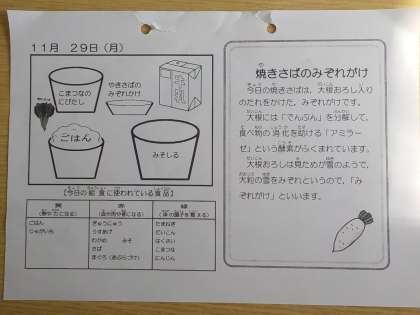 11月 29日(月)
こまつなの
にびたし
やきさばの
みぞれがけ
ごはん
みそしる
【今日の給食に使われている食品】
黄
赤
緑
(熱や力になる)
(血や肉や骨になる)
(体の調子を整える)
ごはん
じゃがいも
ぎゅうにゅう
うすあげ
わかめ みそ
さば
まぐろ(あぶらづけ)
たまねぎ
だいこん
はくさい
こまつな
にんじん
焼きさばのみぞれがけ
今日の焼きさばは、大根おろし入り
のたれをかけた、みぞれがけです。
大根には「でんぷん」を分解して、
食べ物の消化を助ける「アミラー
ゼ」という酵素がふくまれています。
大根おろしは見ためが雪のようで、
大粒の雪をみぞれというので、「み
ぞれがけ」といいます。